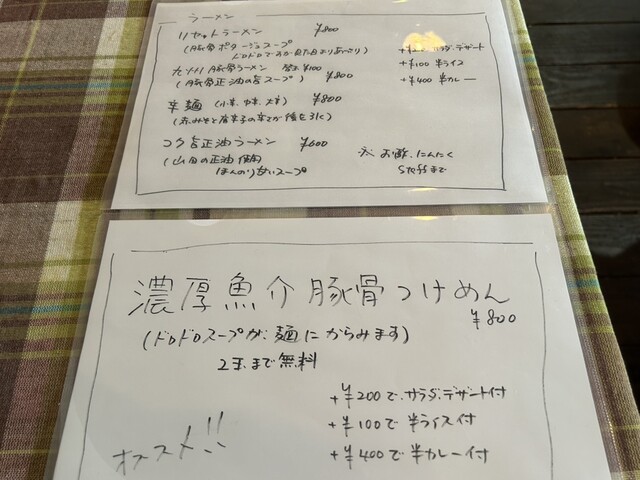 ラーメン
リセットラーメン ¥800
(豚骨ポタージュスープ
ドロドロですが見た目よりあっさり)
九州豚骨ラーメン 替玉¥100
(豚骨正油の旨スープ) ¥800
辛麺 (小辛、中辛、大辛) ¥800
(赤みそと唐辛子の辛さが後を引く)
コク旨正油ラーメン ¥600
(山田の正油使用
ほんのり甘いスープ
サラダ、デザート
+¥100 半ライス
+¥400 半カレー
お酢、にんにく
まで
濃厚魚介豚骨つけめん
¥800
(ドロドロスープが麺にからみます)
2玉まで無料
+¥200で、サラダ、デザート付
+¥100で半ライス付
+¥400で半カレー付
オススメ!!